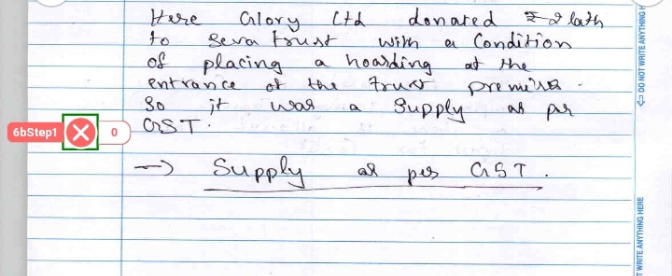 Here Glory Ltd donated ₹ 2 lakh
to Seva trust with a Condition
of placing a hoarding at the
entrance of the trust premises.
So it was a Supply as per
GST.
6bStep1 0
→ Supply as per GST.
DO NOT WRITE ANYTHING H
T WRITE ANYTHING HERE